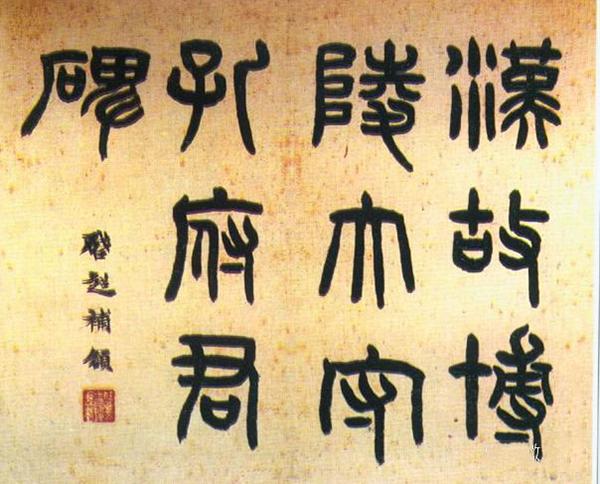 漢故博
陵太守
孔府君
碑
啟超補額